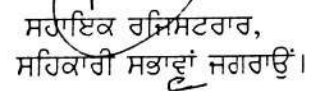 ਸਹਾਇਕ ਰਜਿਸਟਰਾਰ,
ਸਹਿਕਾਰੀ ਸਭਾਵਾਂ ਜਗਰਾਉਂ।